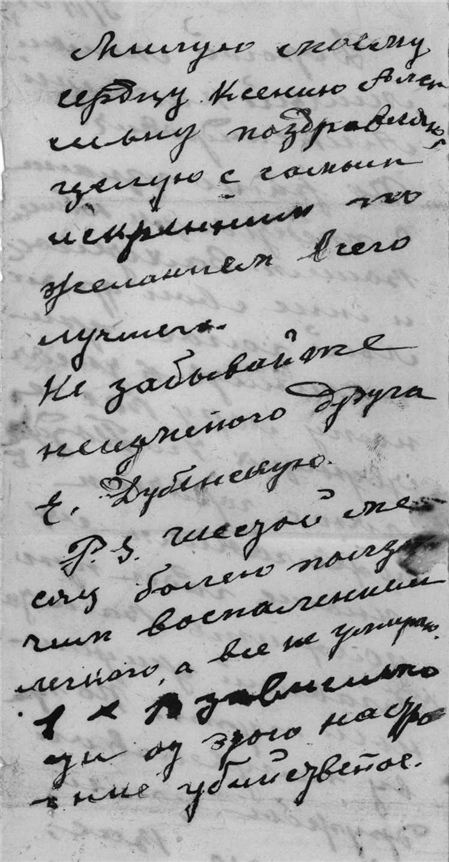 Милую моему
сердцу Ксению Алек
сеевну поздравляю,
целую с самым
искренним по
желанием всего
лучшего.
Не забывайте
неизменого друга
Е. Дубенскую.
P. S. шестой ме
сяц болею ползу
чим воспалением
легкого, а все не умираю.
в зависимо
сти от этого настро
ение убийственое.